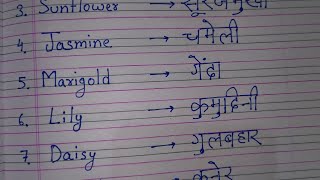 3. Sunflower → सूरजमुखी
4. Jasmine → चमेली
5. Marigold → गेंदा
6. Lily → कुमुदिनी
7. Daisy → गुलबहार
कनेर